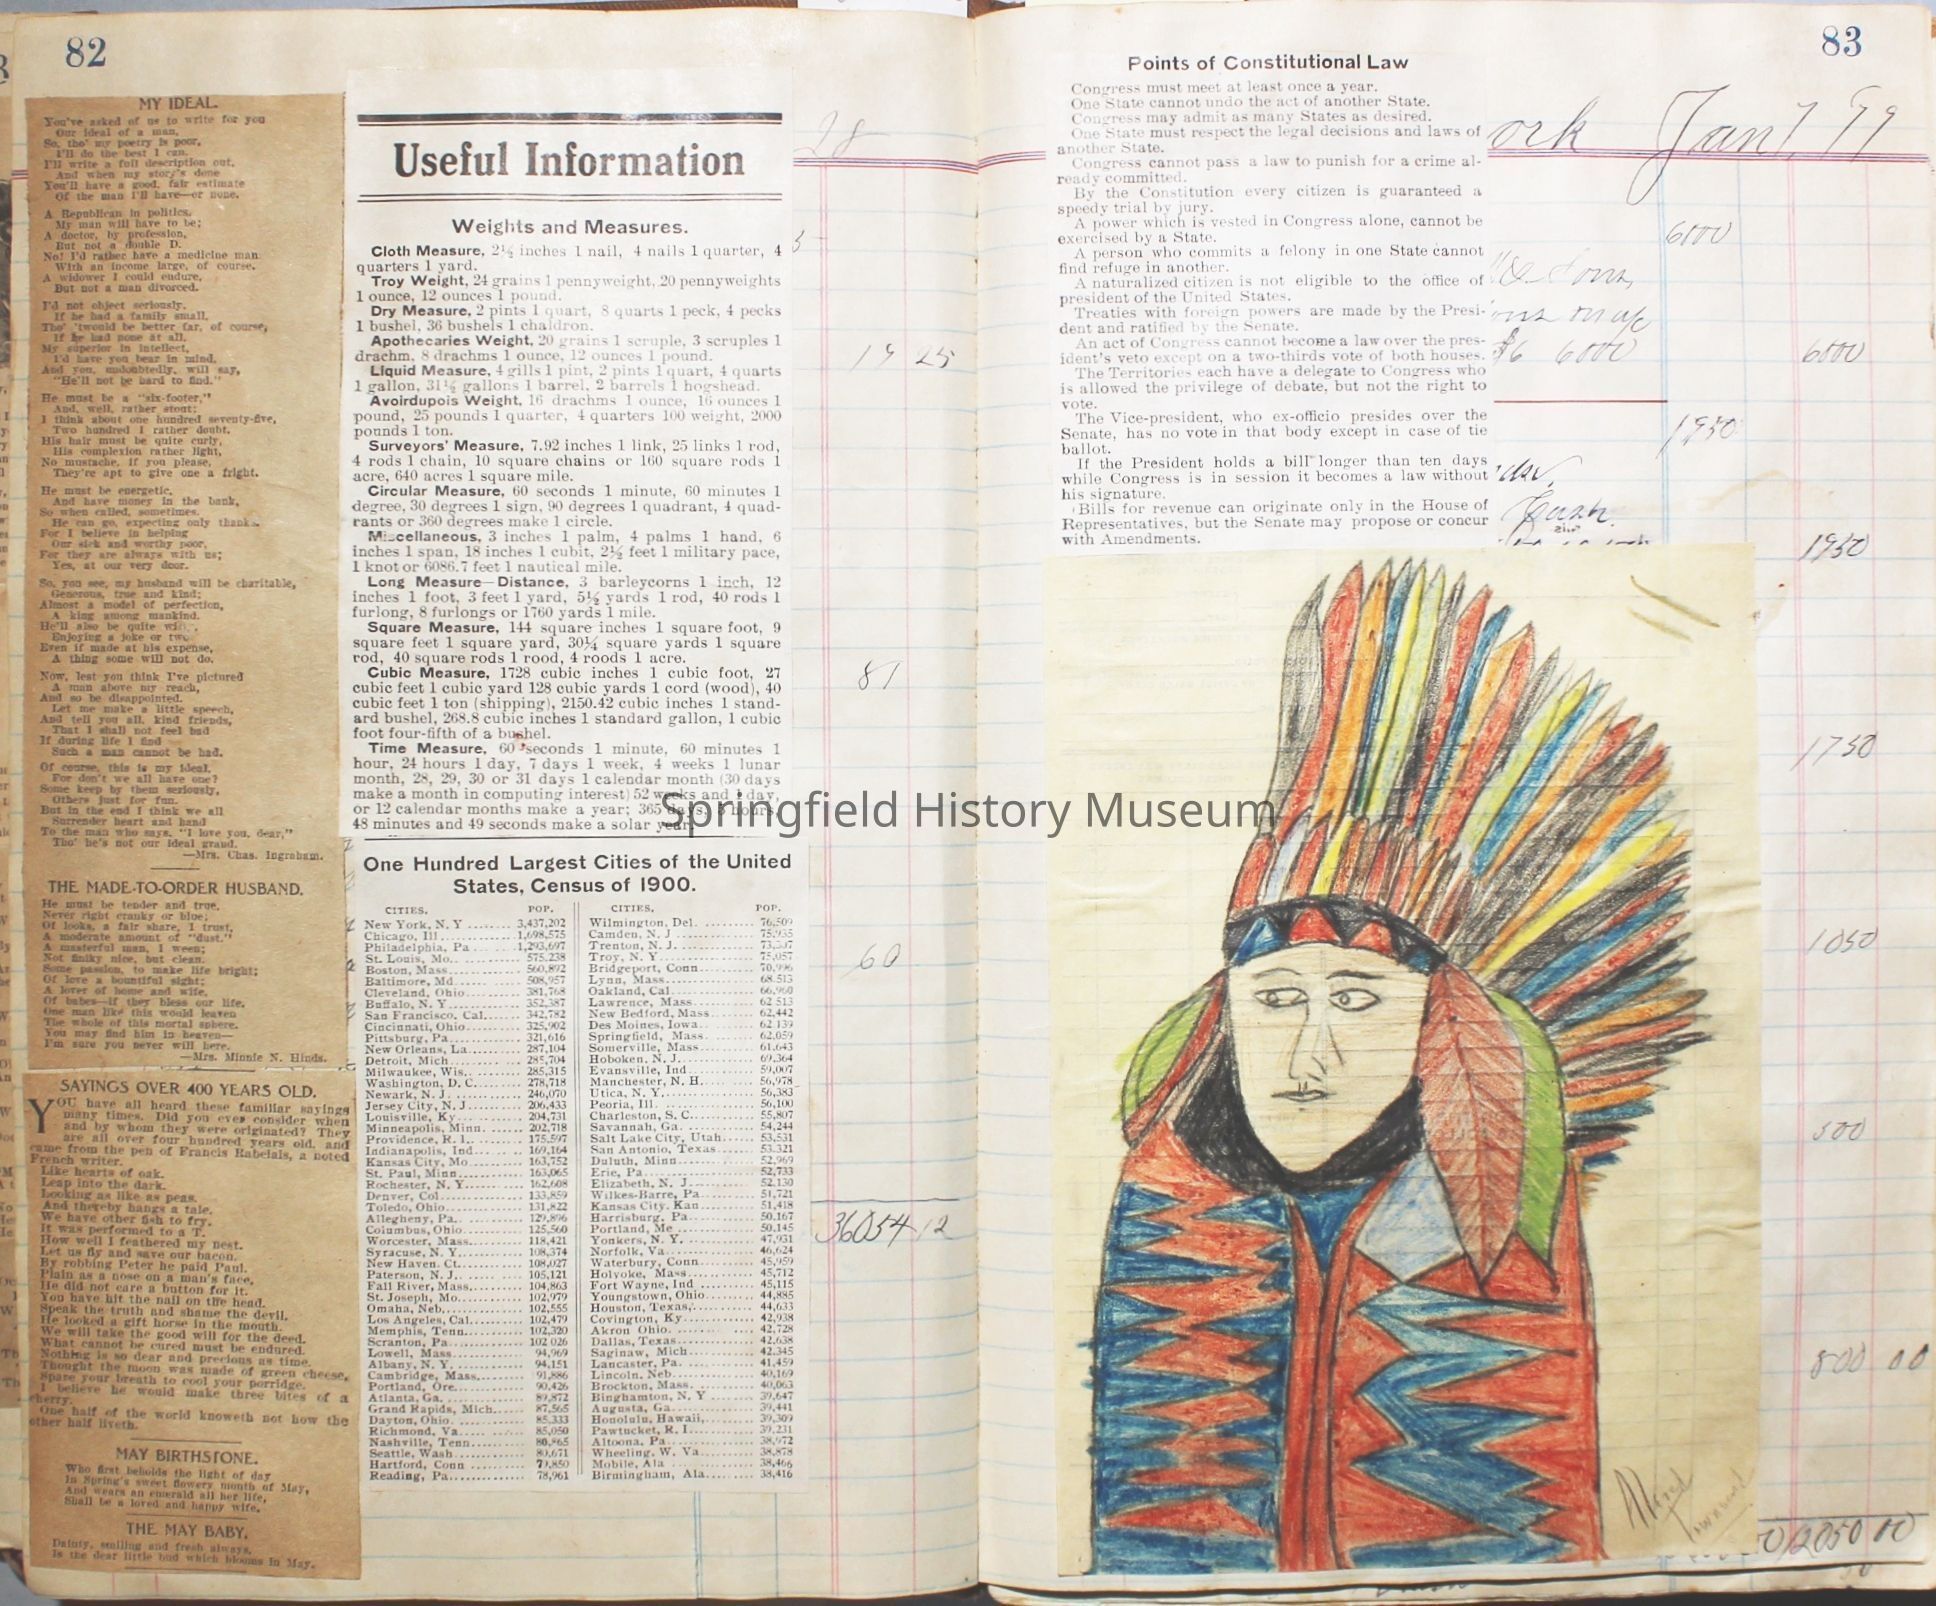 82
MY IDEAL.
You've asked of us to write for you
Our ideal of a man,
So, tho' my poetry is poor,
I'll do the best I can.
I'll write a full description out,
And when my story's done
You'll have a good, fair estimate
Of the man I'll have—or none.
A Republican in politics,
My man will have to be;
A doctor, by profession,
But not a double D.
No! I'd rather have a medicine man
With an income large, of course.
A widower I could endure,
But not a man divorced.
I'd not object seriously,
If he had a family small,
Tho' 'twould be better far, of course,
If he had none at all.
My superior in intellect,
I'd have you bear in mind,
And you, undoubtedly, will say,
"He'll not be hard to find."
He must be a "six-footer,"
And, well, rather stout;
I think about one hundred seventy-five,
Two hundred I rather doubt.
His hair must be quite curly,
His complexion rather light,
No mustache, if you please,
They're apt to give one a fright.
He must be energetic,
And have money in the bank,
So when called, sometimes,
He can go, expecting only thanks.
For I believe in helping
Our sick and worthy poor,
For they are always with us;
Yes, at our very door.
So, you see, my husband will be charitable,
Generous, true and kind;
Almost a model of perfection,
A king among mankind.
He'll also be quite
Enjoying a joke or two
Even if made at his expense,
A thing some will not do.
Now, lest you think I've pictured
A man above my reach,
And so be disappointed,
Let me make a little speech,
And tell you all, kind friends,
That I shall not feel bad
If during life I find
Such a man cannot be had.
Of course, this is my ideal,
For don't we all have one?
Some keep by them seriously,
Others just for fun.
But in the end I think we all
Surrender heart and hand
To the man who says, "I love you, dear,"
Tho' he's not our ideal grand.
—Mrs. Chas. Ingraham.
THE MADE-TO-ORDER HUSBAND.
He must be tender and true,
Never right cranky or blue;
Of looks, a fair share, I trust,
A moderate amount of "dust."
A masterful man, I ween;
Not finiky nice, but clean.
Some passion, to make life bright;
Of love a bountiful sight;
A lover of home and wife,
Of babes—if they bless our life.
One man like this would leaven
The whole of this mortal sphere.
You may find him in heaven—
I'm sure you never will here.
—Mrs. Minnie N. Hinds.
SAYINGS OVER 400 YEARS OLD.
YOU have all heard these familiar sayings
many times. Did you ever consider when
and by whom they were originated? They
are all over four hundred years old, and
came from the pen of Francis Rabelais, a noted
French writer.
Like hearts of oak.
Leap into the dark.
Looking as like as peas.
And thereby hangs a tale.
We have other fish to fry.
It was performed to a T.
How well I feathered my nest.
Let us fly and save our bacon.
By robbing Peter he paid Paul.
Plain as a nose on a man's face.
He did not care a button for it.
You have hit the nail on the head.
Speak the truth and shame the devil.
He looked a gift horse in the mouth.
We will take the good will for the deed.
What cannot be cured must be endured.
Nothing is so dear and precious as time.
Thought the moon was made of green cheese.
Spare your breath to cool your porridge.
I believe he would make three bites of a
cherry.
One half of the world knoweth not how the
other half liveth.
MAY BIRTHSTONE.
Who first beholds the light of day
In Spring's sweet flowery month of May,
And wears an emerald all her life,
Shall be a loved and happy wife.
THE MAY BABY.
Dainty, smiling and fresh always,
Is the dear little bud which blooms in May.
Useful Information
Weights and Measures.
Cloth Measure, 2¼ inches 1 nail, 4 nails 1 quarter, 4
quarters 1 yard.
Troy Weight, 24 grains 1 pennyweight, 20 pennyweights
1 ounce, 12 ounces 1 pound.
Dry Measure, 2 pints 1 quart, 8 quarts 1 peck, 4 pecks
1 bushel, 36 bushels 1 chaldron.
Apothecaries Weight, 20 grains 1 scruple, 3 scruples 1
drachm, 8 drachms 1 ounce, 12 ounces 1 pound.
Liquid Measure, 4 gills 1 pint, 2 pints 1 quart, 4 quarts
1 gallon, 31½ gallons 1 barrel, 2 barrels 1 hogshead.
Avoirdupois Weight, 16 drachms 1 ounce, 16 ounces 1
pound, 25 pounds 1 quarter, 4 quarters 100 weight, 2000
pounds 1 ton.
Surveyors' Measure, 7.92 inches 1 link, 25 links 1 rod,
4 rods 1 chain, 10 square chains or 160 square rods 1
acre, 640 acres 1 square mile.
Circular Measure, 60 seconds 1 minute, 60 minutes 1
degree, 30 degrees 1 sign, 90 degrees 1 quadrant, 4 quad-
rants or 360 degrees make 1 circle.
Miscellaneous, 3 inches 1 palm, 4 palms 1 hand, 6
inches 1 span, 18 inches 1 cubit, 2½ feet 1 military pace,
1 knot or 6086.7 feet 1 nautical mile.
Long Measure—Distance, 3 barleycorns 1 inch, 12
inches 1 foot, 3 feet 1 yard, 5½ yards 1 rod, 40 rods 1
furlong, 8 furlongs or 1760 yards 1 mile.
Square Measure, 144 square inches 1 square foot, 9
square feet 1 square yard, 30¼ square yards 1 square
rod, 40 square rods 1 rood, 4 roods 1 acre.
Cubic Measure, 1728 cubic inches 1 cubic foot, 27
cubic feet 1 cubic yard 128 cubic yards 1 cord (wood), 40
cubic feet 1 ton (shipping), 2150.42 cubic inches 1 stand-
ard bushel, 268.8 cubic inches 1 standard gallon, 1 cubic
foot four-fifth of a bushel.
Time Measure, 60 seconds 1 minute, 60 minutes 1
hour, 24 hours 1 day, 7 days 1 week, 4 weeks 1 lunar
month, 28, 29, 30 or 31 days 1 calendar month (30 days
make a month in computing interest) 52 weeks and 1 day,
or 12 calendar months make a year; 365 days, 5 hours,
48 minutes and 49 seconds make a solar year.
One Hundred Largest Cities of the United
States, Census of 1900.
CITIES. POP.
New York, N. Y. 3,437,202
Chicago, Ill. 1,698,575
Philadelphia, Pa 1,293,697
St. Louis, Mo. 575,238
Boston, Mass. 560,892
Baltimore, Md 508,957
Cleveland, Ohio 381,768
Buffalo, N. Y. 352,387
San Francisco, Cal. 342,782
Cincinnati, Ohio 325,902
Pittsburg, Pa. 321,616
New Orleans, La. 287,104
Detroit, Mich. 285,704
Milwaukee, Wis. 285,315
Washington, D. C. 278,718
Newark, N. J. 246,070
Jersey City, N. J. 206,433
Louisville, Ky. 204,731
Minneapolis, Minn. 202,718
Providence, R. I. 175,597
Indianapolis, Ind. 169,164
Kansas City, Mo 163,752
St. Paul, Minn. 163,065
Rochester, N. Y. 162,608
Denver, Col. 133,859
Toledo, Ohio 131,822
Allegheny, Pa. 129,896
Columbus, Ohio 125,560
Worcester, Mass. 118,421
Syracuse, N. Y. 108,374
New Haven, Ct. 108,027
Paterson, N. J. 105,121
Fall River, Mass. 104,863
St. Joseph, Mo. 102,979
Omaha, Neb. 102,555
Los Angeles, Cal. 102,479
Memphis, Tenn. 102,320
Scranton, Pa. 102 026
Lowell, Mass. 94,969
Albany, N. Y. 94,151
Cambridge, Mass. 91,886
Portland, Ore. 90,426
Atlanta, Ga. 89,872
Grand Rapids, Mich. 87,565
Dayton, Ohio 85,333
Richmond, Va. 85,050
Nashville, Tenn. 80,865
Seattle, Wash. 80,671
Hartford, Conn 79,850
Reading, Pa. 78,961
CITIES. POP.
Wilmington, Del. 76,509
Camden, N. J. 75,935
Trenton, N. J. 73,307
Troy, N. Y. 75,057
Bridgeport, Conn. 70,996
Lynn, Mass. 68 513
Oakland, Cal. 66,960
Lawrence, Mass 62 513
New Bedford, Mass. 62,442
Des Moines, Iowa 62 139
Springfield, Mass. 62,059
Somerville, Mass. 61,643
Hoboken, N. J. 69,364
Evansville, Ind 59,007
Manchester, N. H. 56,978
Utica, N. Y. 56,383
Peoria, Ill. 56,100
Charleston, S. C. 55,807
Savannah, Ga. 54,244
Salt Lake City, Utah 53,531
San Antonio, Texas 53.321
Duluth, Minn. 52,969
Erie, Pa. 52,733
Elizabeth, N. J. 52,130
Wilkes-Barre, Pa. 51,721
Kansas City. Kan. 51,418
Harrisburg, Pa. 50,167
Portland, Me 50,145
Yonkers, N. Y. 47,931
Norfolk, Va. 46,624
Waterbury, Conn. 45,959
Holyoke, Mass. 45,712
Fort Wayne, Ind 45,115
Youngstown, Ohio 44,885
Houston, Texas 44,633
Covington, Ky. 42,938
Akron Ohio. 42,728
Dallas, Texas 42,638
Saginaw, Mich 42.345
Lancaster, Pa. 41,459
Lincoln, Neb. 40,169
Brockton, Mass. 40,063
Binghamton, N. Y 39,647
Augusta, Ga. 39,441
Honolulu, Hawaii, 39,309
Pawtucket, R. I. 39,231
Altoona, Pa. 38,972
Wheeling, W. Va. 38,878
Mobile, Ala 38,466
Birmingham, Ala. 38,416
28
19 25
81
60
36054 12
Springfield History Museum
83
Points of Constitutional Law
Congress must meet at least once a year.
One State cannot undo the act of another State.
Congress may admit as many States as desired.
One State must respect the legal decisions and laws of
another State.
Congress cannot pass a law to punish for a crime al-
ready committed.
By the Constitution every citizen is guaranteed a
speedy trial by jury.
A power which is vested in Congress alone, cannot be
exercised by a State.
A person who commits a felony in one State cannot
find refuge in another.
A naturalized citizen is not eligible to the office of
president of the United States.
Treaties with foreign powers are made by the Presi-
dent and ratified by the Senate.
An act of Congress cannot become a law over the pres-
ident's veto except on a two-thirds vote of both houses.
The Territories each have a delegate to Congress who
is allowed the privilege of debate, but not the right to
vote.
The Vice-president, who ex-officio presides over the
Senate, has no vote in that body except in case of tie
ballot.
If the President holds a bill longer than ten days
while Congress is in session it becomes a law without
his signature.
Bills for revenue can originate only in the House of
Representatives, but the Senate may propose or concur
with Amendments.
ork Jan 7 99
6000
$6 6000
6000
1950
Cash
1950
1750
1050
500
800 00
12050 00